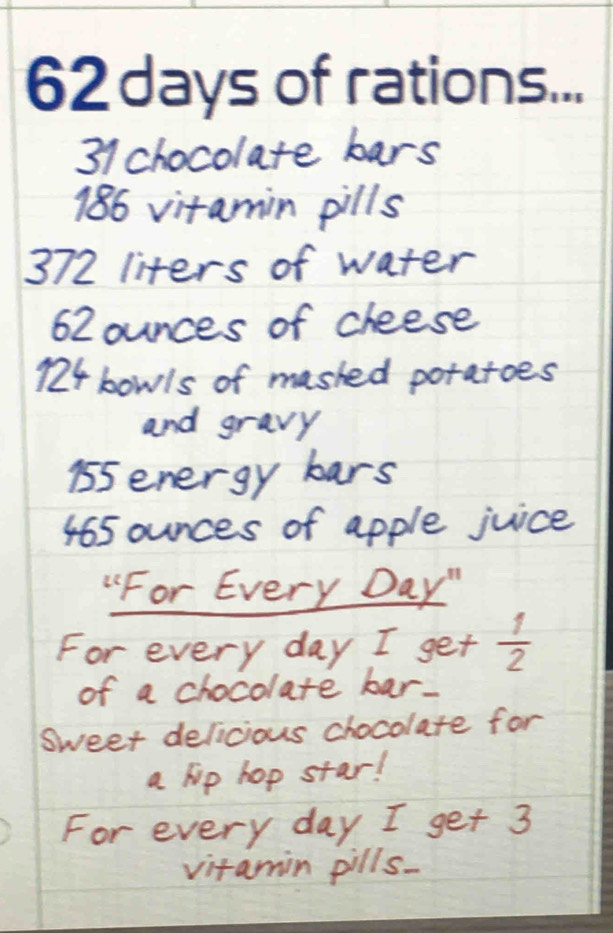 62 days of rations...
31 chocolate bars
186 vitamin pills
372 liters of water
62 ounces of cheese
124 bowls of mashed potatoes
and gravy
155 energy bars
465 ounces of apple juice
"For Every Day"
For every day I get 1/2
of a chocolate bar-
Sweet delicious chocolate for
a hip hop star!
For every day I get 3
vitamin pills-